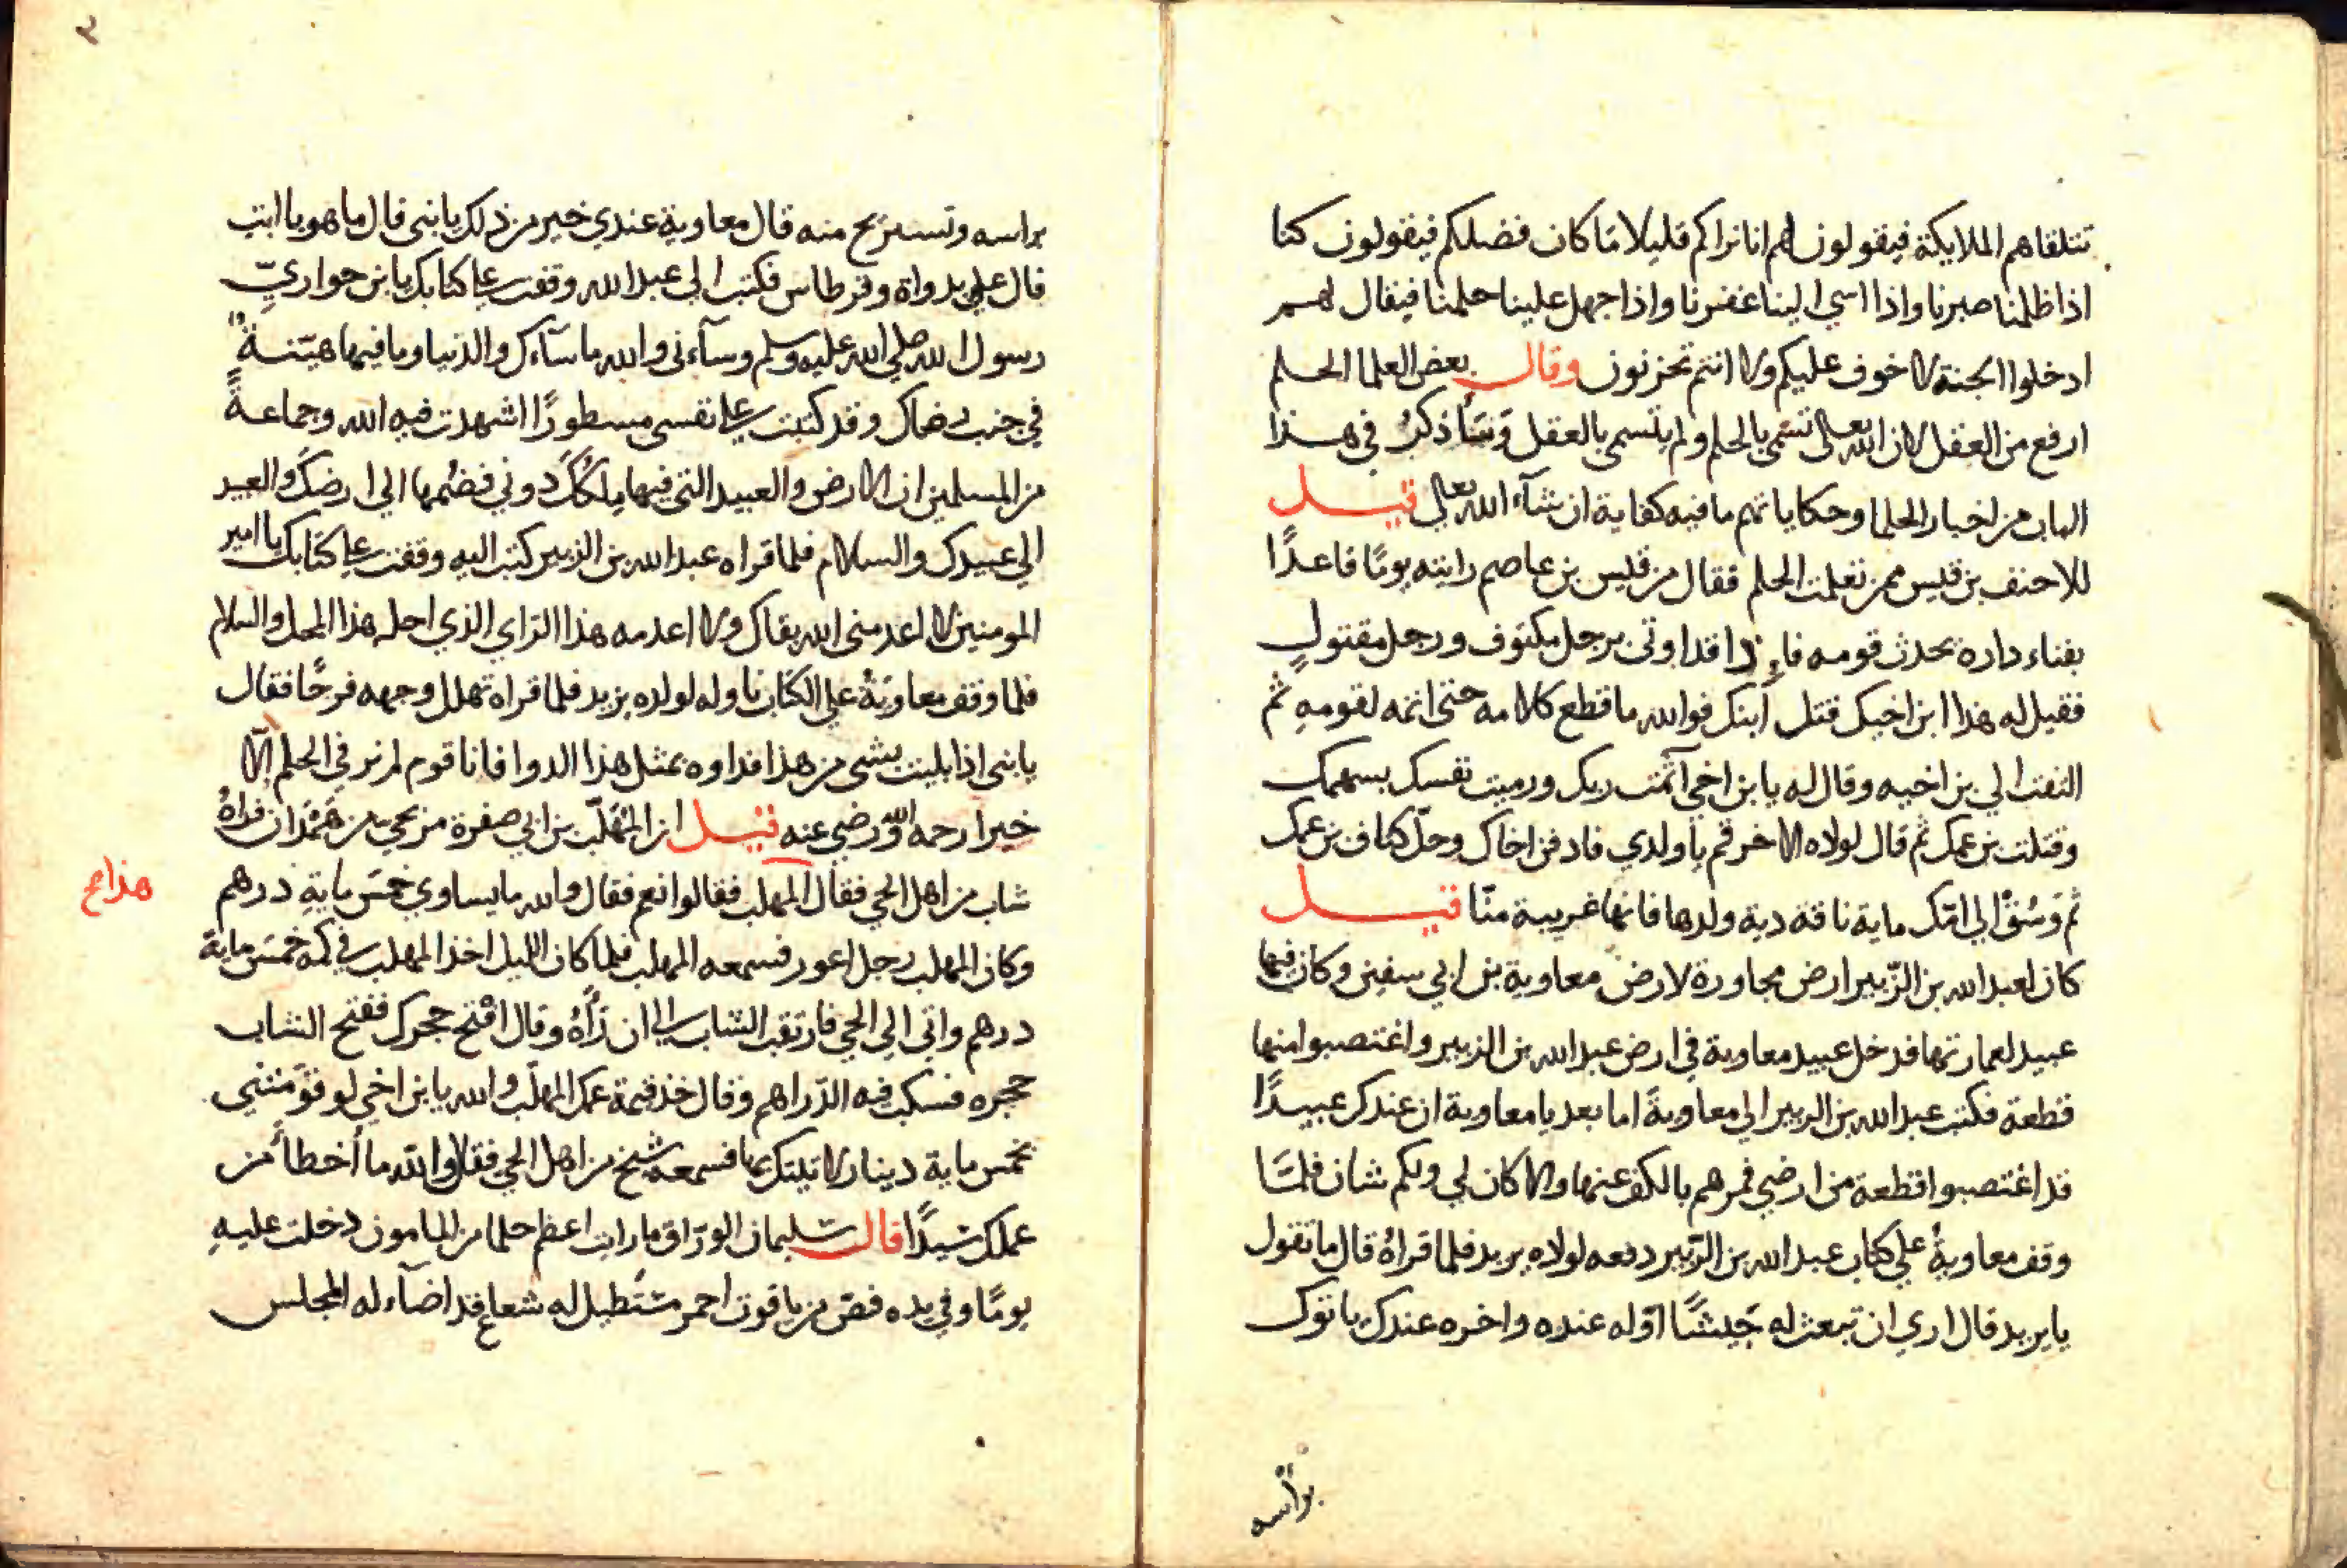 تتلقاهم الملايكة فيقولون لهم انا نراكم قليلا ما كان فضلكم فيقولون كنا
اذا ظلمنا صبرنا واذا اسي الينا غفرنا واذا جهل علينا حلمنا فيقال لهم
ادخلوا الجنة لا خوف عليكم ولا انتم تحزنون وقال بعض العلما الحلم
ارفع من العقل لان الله تعالى تسمى بالحلم ولم يتسمى بالعقل وسأذكر في هذا
الباب من اخبار الحلما وحكاياتهم ما فيه كفاية ان شآء الله تعالى قيل
للاحنف بن قيس ممن تعلمت الحلم فقال من قيس بن عاصم رايته يومًا قاعدًا
بفناء داره يحدث قومه فاذا قد اوتى برجل مكتوف ورجل مقتول
فقيل له هذا ابن اخيك قتل ابنك فوالله ما قطع كلامه حتى اتمه لقومه ثم
التفت الي بن اخيه وقال له يا بن اخي آثمت ربك ورميت نفسك بسهمك
وقتلت بن عمك ثم قال لولاه الاخر قم يا ولدي فادفن اخاك وحل كتاف بن عمك
ثم وسُقْ الي امّك ماية ناقة دية ولدها فانها غريبة منّا قيل
كان لعبد الله بن الزّبير ارض مجاورة لارض معاوية بن ابي سفين وكان فيها
عبيد لعمارتها فدخل عبيد معاوية في ارض عبد الله بن الزبير واغتصبوا منها
قطعة فكتب عبد الله بن الزبير الي معاوية اما بعد يا معاوية ان عندك عبيدًا
قد اغتصبوا قطعة من ارضي فمرهم بالكف عنها والا كان لي ولكم شان فلمّا
وقف معاوية علي كتاب عبد الله بن الزّبير دفعه لولاه يزيد فلما قراهُ قال ما تقول
يا يزيد قال اري ان تبعث له جَيشًا اوّله عنده واخره عندك ياتوك
براسه
٢
براسه وتستريح منه قال معاوية عندي خير من ذلك يا بنى قال ما هو يا ابت
قال علي بدواة وقرطاس فكتب الى عبد الله وقفت على كتابك يا بن حواريّ
رسول الله صلي الله عليه وسلم وسآءنى والله ما سآءك والدنيا وما فيها هيّنة
في جنب رضاك وقد كتبت على نفسى مسطورًا اشهدت فيه الله وجماعةً
من المسلمين ان الارض والعبيد التى فيها ملكك دوني فضُمها الي ارضك والعبيد
الي عبيدك والسلام فلما قراه عبد الله بن الزبير كتب اليه وقفت على كتابك يا امير
المومنين لا اعدمنى الله بقاك ولا اعدمه هذا الرّاي الذي احله هذا المحل والسلام
فلما وقف معاوية على الكتاب ناوله لولده يزيد فلما قراه تهلل وجهه فرحًا فقال
يا بنى اذا بليت بشى من هذا فداوه بمثل هذا الدوا فانا قوم لم نر في الحلم الّا
خيرا رحمه الله ورضي عنه قيل ان المُهَلّب بن ابي صفرة مر بحي من هَمْدان فراهُ
شاب من اهل الحي فقال المهلب فقالوا نعم فقال والله ما يساوي خمسَ مايةِ درهم
هذا مح
وكان المهلب رجل اعور فسمعه المهلب فلما كان الليل اخذ المهلب في كمه خمس ماية
درهم واتى الى الحي فارتقب الشاب الي ان رآهُ وقال افتح حجرك ففتح الشاب
حجره فسكب فيه الدّراهم وقال خذ قيمة عمك المهلّب والله يا بن اخي لو قوّمتنى
بخمس ماية دينار لاتيتك بها فسمعه شيخ من اهل الحي فقال والله ما أخطأ من
عملك سيدًا قال سليمان الورّاق ما رايت اعظم حلما من المامون دخلت عليه
يومًا وفي يده فصّ من ياقوت احمر مستطيل له شعاع قد اضآء له المجلس